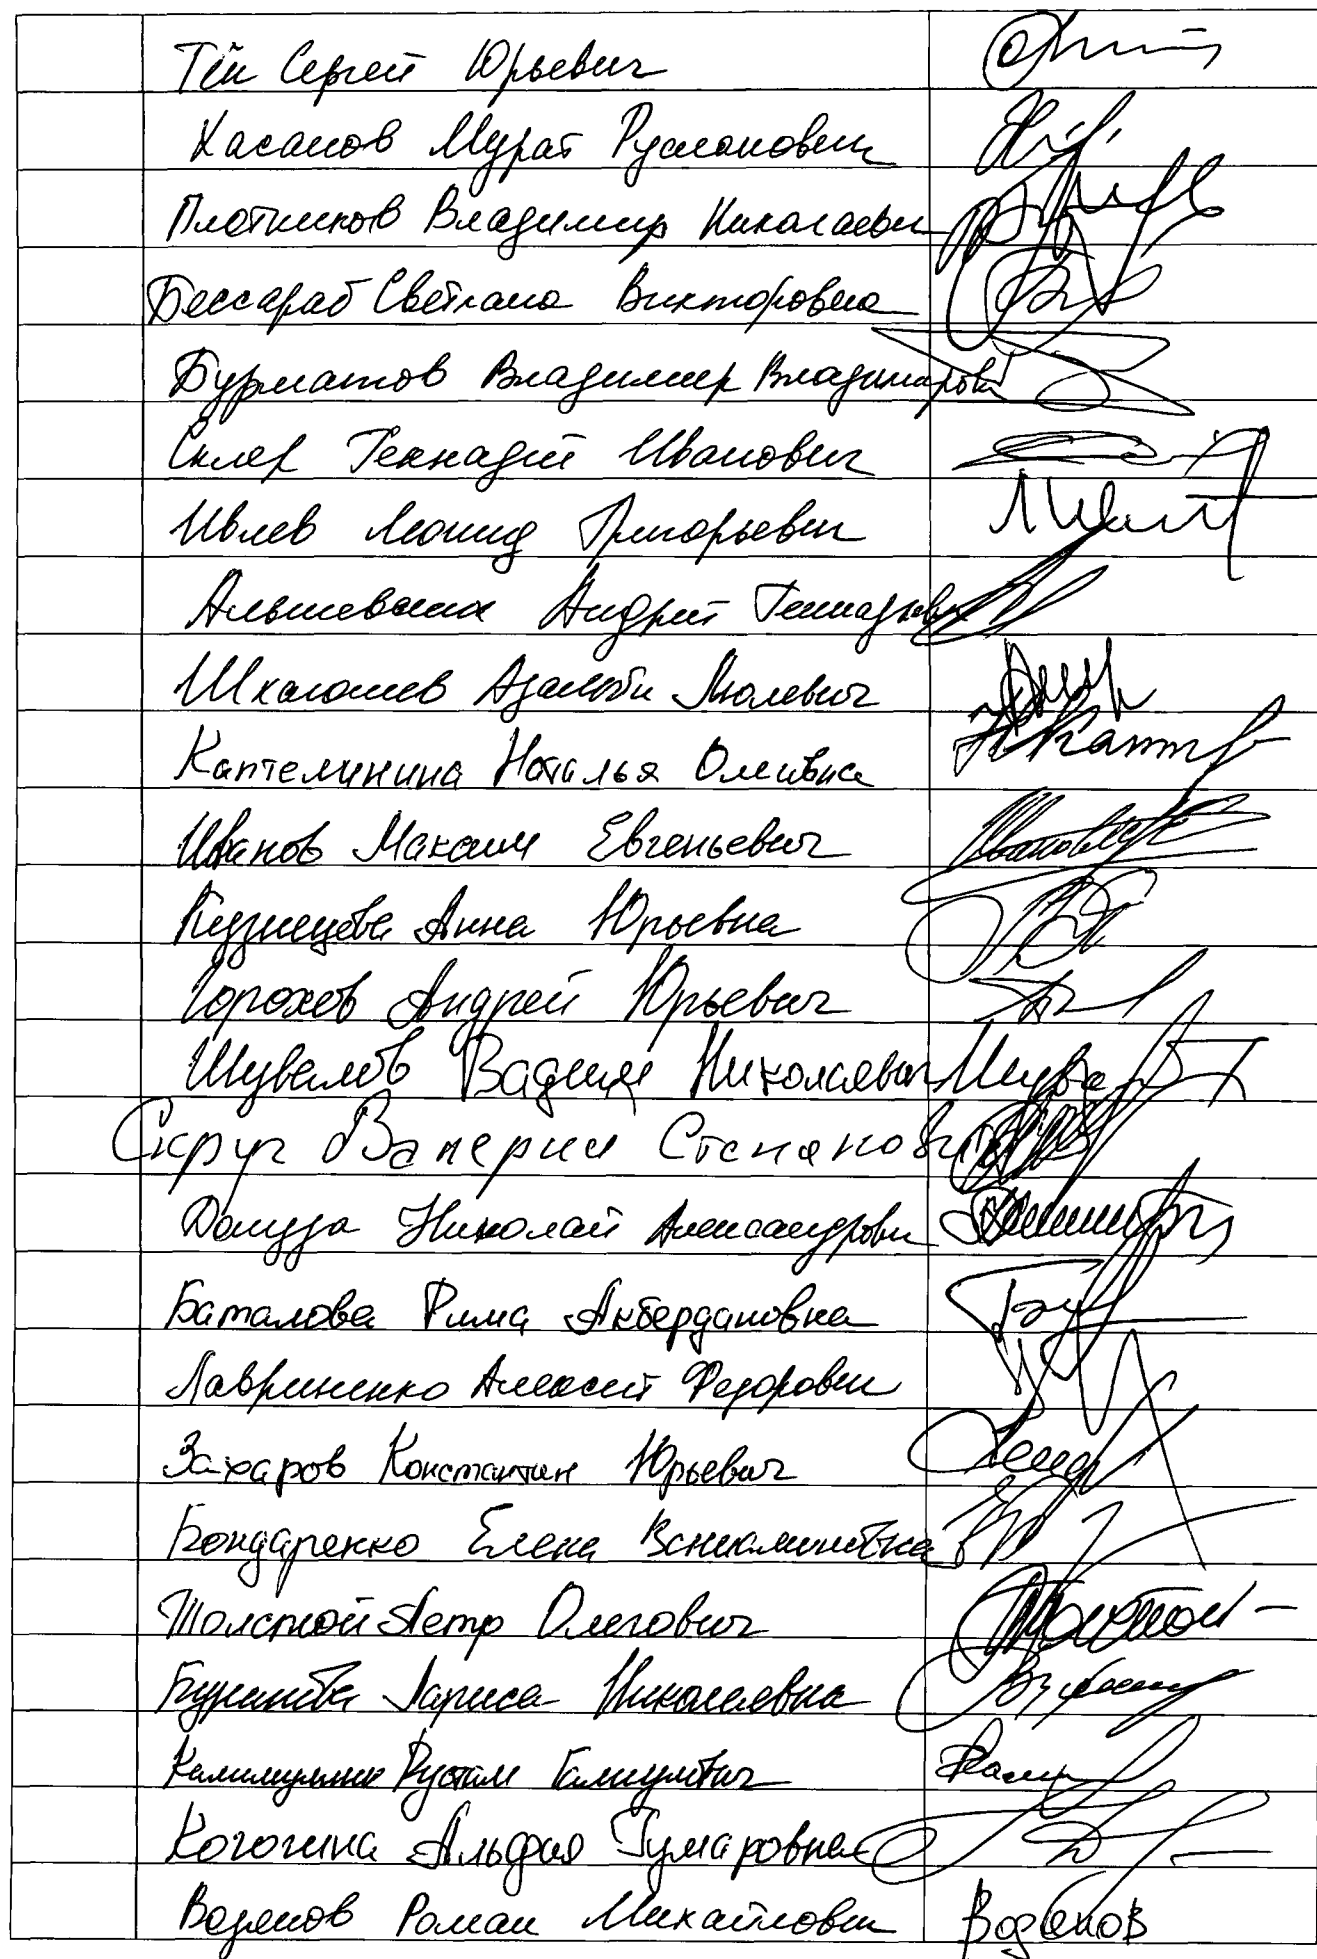 Тён Сергей Юрьевич
Хасанов Мурат Русланович
Плотников Владимир Николаевич
Бессараб Светлана Викторовна
Бурматов Владимир Владимирович
Скляр Геннадий Иванович
Ивлев Леонид Григорьевич
Альшевских Андрей Геннадьевич
Шхагошев Адальби Люлевич
Каптелинина Наталья Олеговна
Иванов Максим Евгеньевич
Кузнецова Анна Юрьевна
Горохов Андрей Юрьевич
Шувалов Вадим Николаевич
Скруг Валерий Степанович
Долуда Николай Александрович
Баталова Рима Акбердиновна
Лавриненко Алексей Федорович
Захаров Константин Юрьевич
Бондаренко Елена Вениаминовна
Толстой Петр Олегович
Буранова Лариса Николаевна
Калимуллин Рустам Галиуллович
Когогина Альфия Гумаровна
Водянов Роман Михайлович